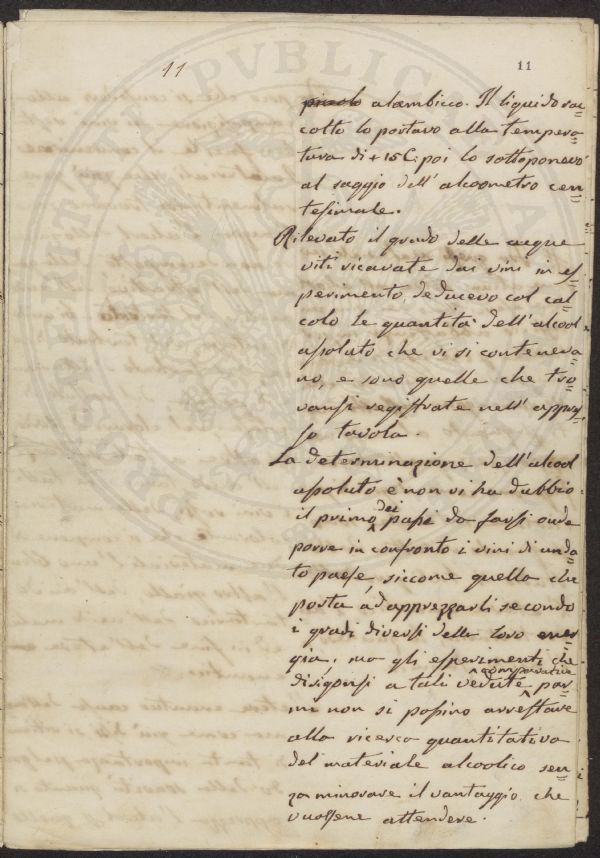 11
11
piccolo alambicco. Il liquido rac=
colto lo portavo alla tempera=
tura di + 15 C: poi lo sottoponevo
al saggio dell' alcoometro cen=
tesimale.
Rilevato il grado delle acque
viti ricavate dai vini in es=
perimento, deducevo col cal=
colo le quantità dell' alcool
assoluto che vi si conteneva=
no, e sono quelle che tro=
vansi registrate nell' appres=
so tavola.
La determinazione dell' alcool
assoluto è non vi ha dubbio
il primo dei passi da farsi onde
porre in confronto i vini di un da=
to paese, siccome quella che
porta ad apprezzarli secondo
i gradi diversi della loro ener=
gia, ma gli esperimenti che
dirigonsi a tali vedute comparative par=
mi non si possino arrestare
alla ricerca quantitativa
del materiale alcoolico sen=
za minorare il vantaggio che
vuolsene attendere.
PROSPERITATI PVBLICAE